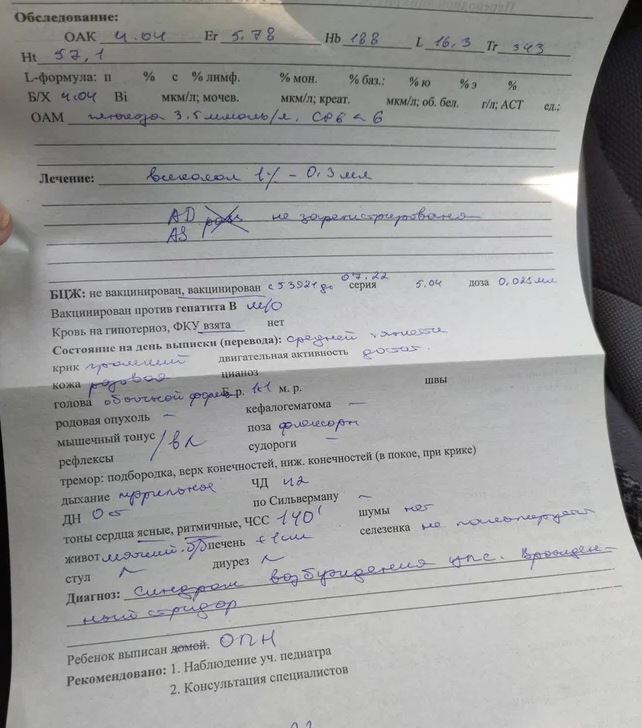 Обследование:
ОАК 4.04 Er 5.78 Hb 188 L 16,3 Tr 343
Ht 57,1
L-формула: п % с % лимф. % мон. % баз.: % ю % э %
Б/Х 4.04 Bi мкм/л; мочев. мкм/л; креат. мкм/л; об. бел. г/л; АСТ ед.;
ОАМ глюкоза 3.5 ммоль/л. СРБ < 6
Лечение: викасол 1% - 0,3 мл
AD не зарегистрирована
AS
БЦЖ: не вакцинирован, вакцинирован с 53921 до 07.22 серия 5.04 доза 0,025 мл
Вакцинирован против гепатита В м/о
Кровь на гипотериоз, ФКУ взята нет
Состояние на день выписки (перевода): средней тяжести
крик громкий двигательная активность достат.
кожа розовая цианоз
голова обычной формы Б. р. 1x1 м. р. швы
родовая опухоль – кефалогематома –
мышечный тонус поза флексорн
рефлексы судороги –
тремор: подбородка, верх конечностей, ниж. конечностей (в покое, при крике)
дыхание пуэрильное ЧД 42
ДН 0 ст по Сильверману –
тоны сердца ясные, ритмичные, ЧСС 140' шумы нет
живот мягкий. б/б печень +1см селезенка не пальпируется
стул N диурез N
Диагноз: синдром возбуждения цнс. Врожден-
ный стридор
Ребенок выписан домой. ОПН
Рекомендовано: 1. Наблюдение уч. педиатра
2. Консультация специалистов